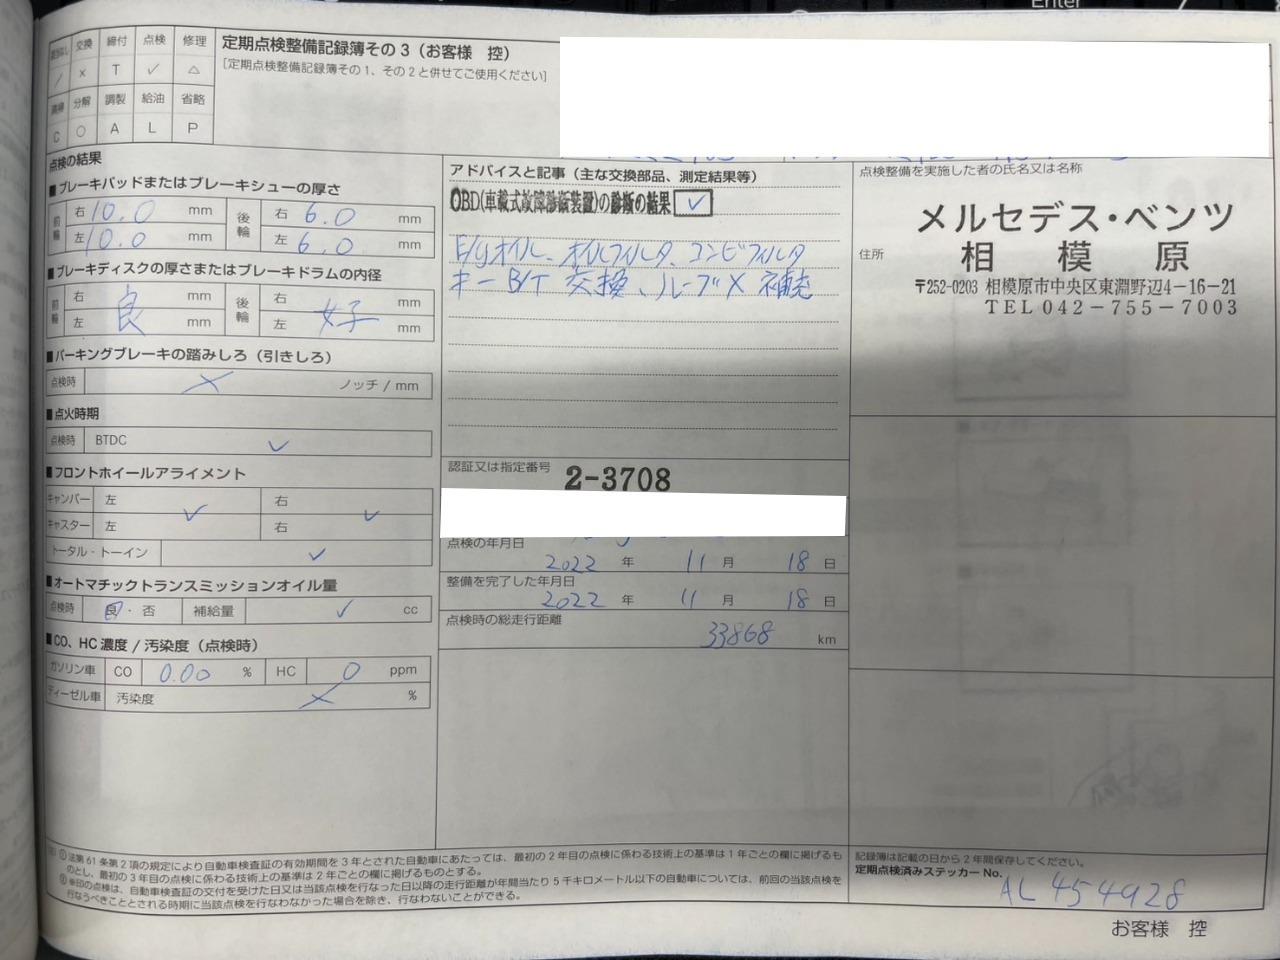 Enter
該当なし 交換 締付 点検 修理
/ × T ✓ △
清掃 分解 調製 給油 省略
C ○ A L P
定期点検整備記録簿その3（お客様 控）
[定期点検整備記録簿その1、その2と併せてご使用ください]
点検の結果
■ブレーキパッドまたはブレーキシューの厚さ
前輪 右 10.0 mm 後輪 右 6.0 mm
左 10.0 mm 左 6.0 mm
■ブレーキディスクの厚さまたはブレーキドラムの内径
前輪 右 良 mm 後輪 右 好 mm
左 mm 左 mm
■パーキングブレーキの踏みしろ（引きしろ）
点検時 ノッチ / mm
■点火時期
点検時 BTDC ✓
■フロントホイールアライメント
キャンバー 左 ✓ 右 ✓
キャスター 左 右
トータル・トーイン ✓
■オートマチックトランスミッションオイル量
点検時 良・否 補給量 ✓ cc
■CO、HC濃度 / 汚染度（点検時）
ガソリン車 CO 0.00 % HC 0 ppm
ディーゼル車 汚染度 %
アドバイスと記事（主な交換部品、測定結果等）
OBD(車載式故障診断装置)の診断の結果 ✓
E/gオイル、オイルフィルタ、コンビフィルタ
キーB/T 交換、ルーブメ 補充
認証又は指定番号 2-3708
点検の年月日
2022 年 11 月 18 日
整備を完了した年月日
2022 年 11 月 18 日
点検時の総走行距離
33868 km
点検整備を実施した者の氏名又は名称
メルセデス・ベンツ
相模原
住所
〒252-0203 相模原市中央区東淵野辺4-16-21
TEL 042-755-7003
①法第61条第2項の規定により自動車検査証の有効期間を3年とされた自動車にあたっては、最初の2年目の点検に係わる技術上の基準は1年ごとの欄に掲げるも
のとし、最初の3年目の点検に係わる技術上の基準は2年ごとの欄に掲げるものとする。
②※印の点検は、自動車検査証の交付を受けた日又は当該点検を行なった日以降の走行距離が年間当たり5千キロメートル以下の自動車については、前回の当該点検を
行なうべきこととされる時期に当該点検を行なわなかった場合を除き、行なわないことができる。
記録簿は記載の日から2年間保存してください。
定期点検済みステッカーNo.
AL 454928
お客様 控